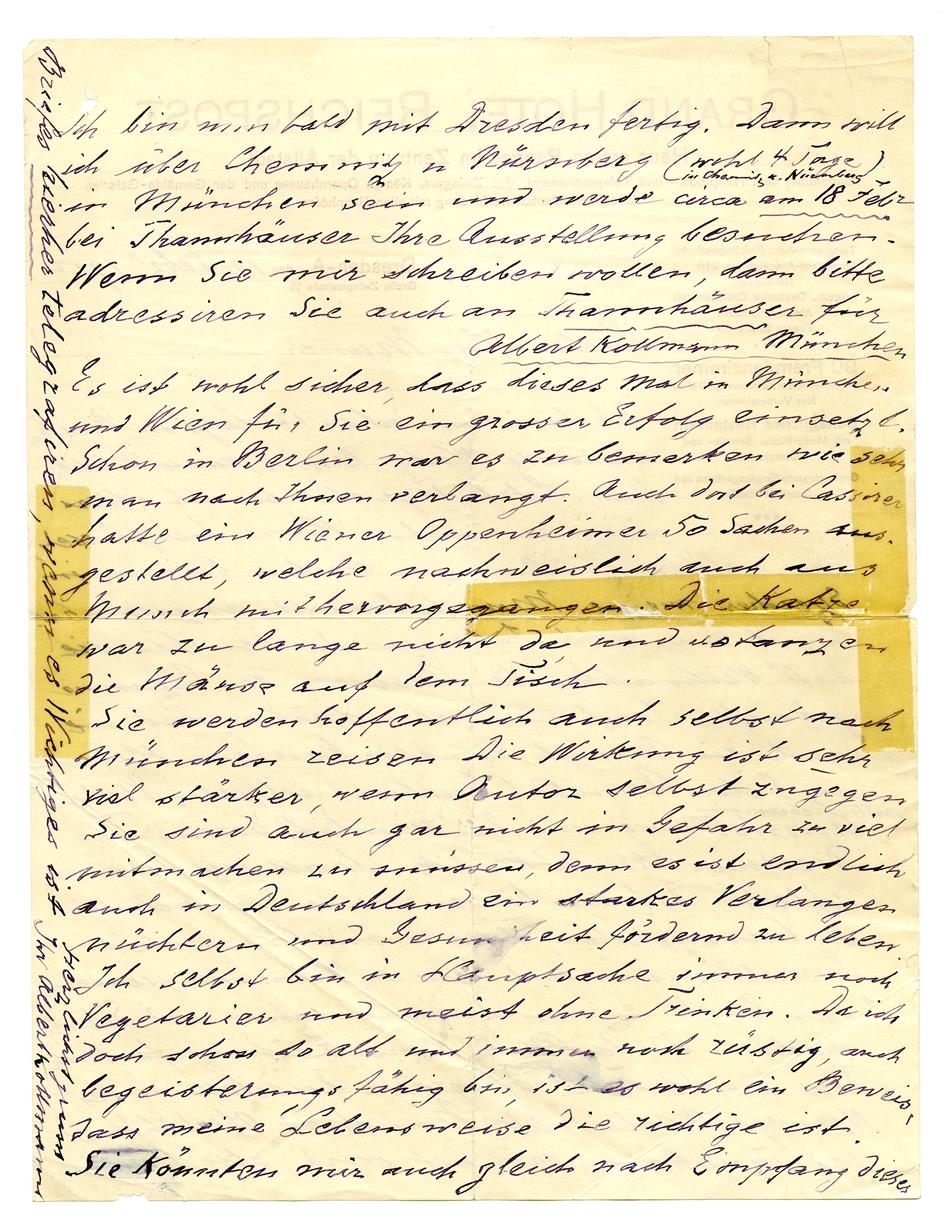 Ich bin nun bald mit Dresden fertig. Dann will
ich über Chemnitz u Nürnberg (wohl 4 Tage
in Chemnitz u. Nürnberg)
in München sein und werde circa am 18 Febr
bei Thannhäuser Ihre Ausstellung besuchen.
Wenn Sie mir schreiben wollen, dann bitte
adressiren Sie auch an Thannhäuser für
Albert Kollmann München
Es ist wohl sicher, dass dieses Mal in München
und Wien für Sie ein grosser Erfolg einsetzt.
Schon in Berlin war es zu bemerken wie sehr
man nach Ihnen verlangt. Auch dort bei Cassirer
hatte ein Wiener Oppenheimer 50 Sachen aus-
gestellt, welche nachweislich auch aus
Munch mithervorgegangen. Die Katze
war zu lange nicht da, und es tanzen
die Mäuse auf dem Tisch.
Sie werden hoffentlich auch selbst nach
München reisen Die Wirkung ist sehr
viel stärker, wenn Autor selbst zugegen
Sie sind auch gar nicht in Gefahr zu viel
mitmachen zu müssen, denn es ist endlich
auch in Deutschland ein starkes Verlangen
nüchtern und Gesundheit fördernd zu leben
Ich selbst bin in Hauptsache immer noch
Vegetarier und meist ohne Trinken. Da ich
doch schon so alt und immer noch rüstig, auch
begeisterungsfähig bin, ist es wohl ein Beweis,
dass meine Lebensweise die richtige ist.
Sie könnten mir auch gleich nach Empfang dieses
Briefes hierher telegrafiren, wenn es Wichtiges ist
Herzlichst grüsst
Ihr Albert Kollmann